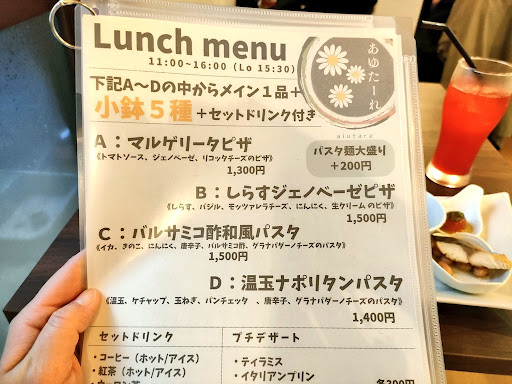 Lunch menu
11:00~16:00 (Lo 15:30)
あゆたーれ
aiutare
下記A~Dの中からメイン1品+
小鉢5種+セットドリンク付き
A:マルゲリータピザ
《トマトソース、ジェノベーゼ、リコッタチーズのピザ》
1,300円
パスタ麺大盛り
+200円
B:しらすジェノベーゼピザ
《しらす、バジル、モッツァレラチーズ、にんにく、生クリームのピザ》
1,500円
C:バルサミコ酢和風パスタ
《イカ、きのこ、にんにく、唐辛子、バルサミコ酢、グラナパダーノチーズのパスタ》
1,500円
D:温玉ナポリタンパスタ
《温玉、ケチャップ、玉ねぎ、パンチェッタ 、唐辛子、グラナパダーノチーズのパスタ》
1,400円
セットドリンク
プチデザート
・コーヒー(ホット/アイス)
・紅茶(ホット/アイス)
・ティラミス
・イタリアンプリン